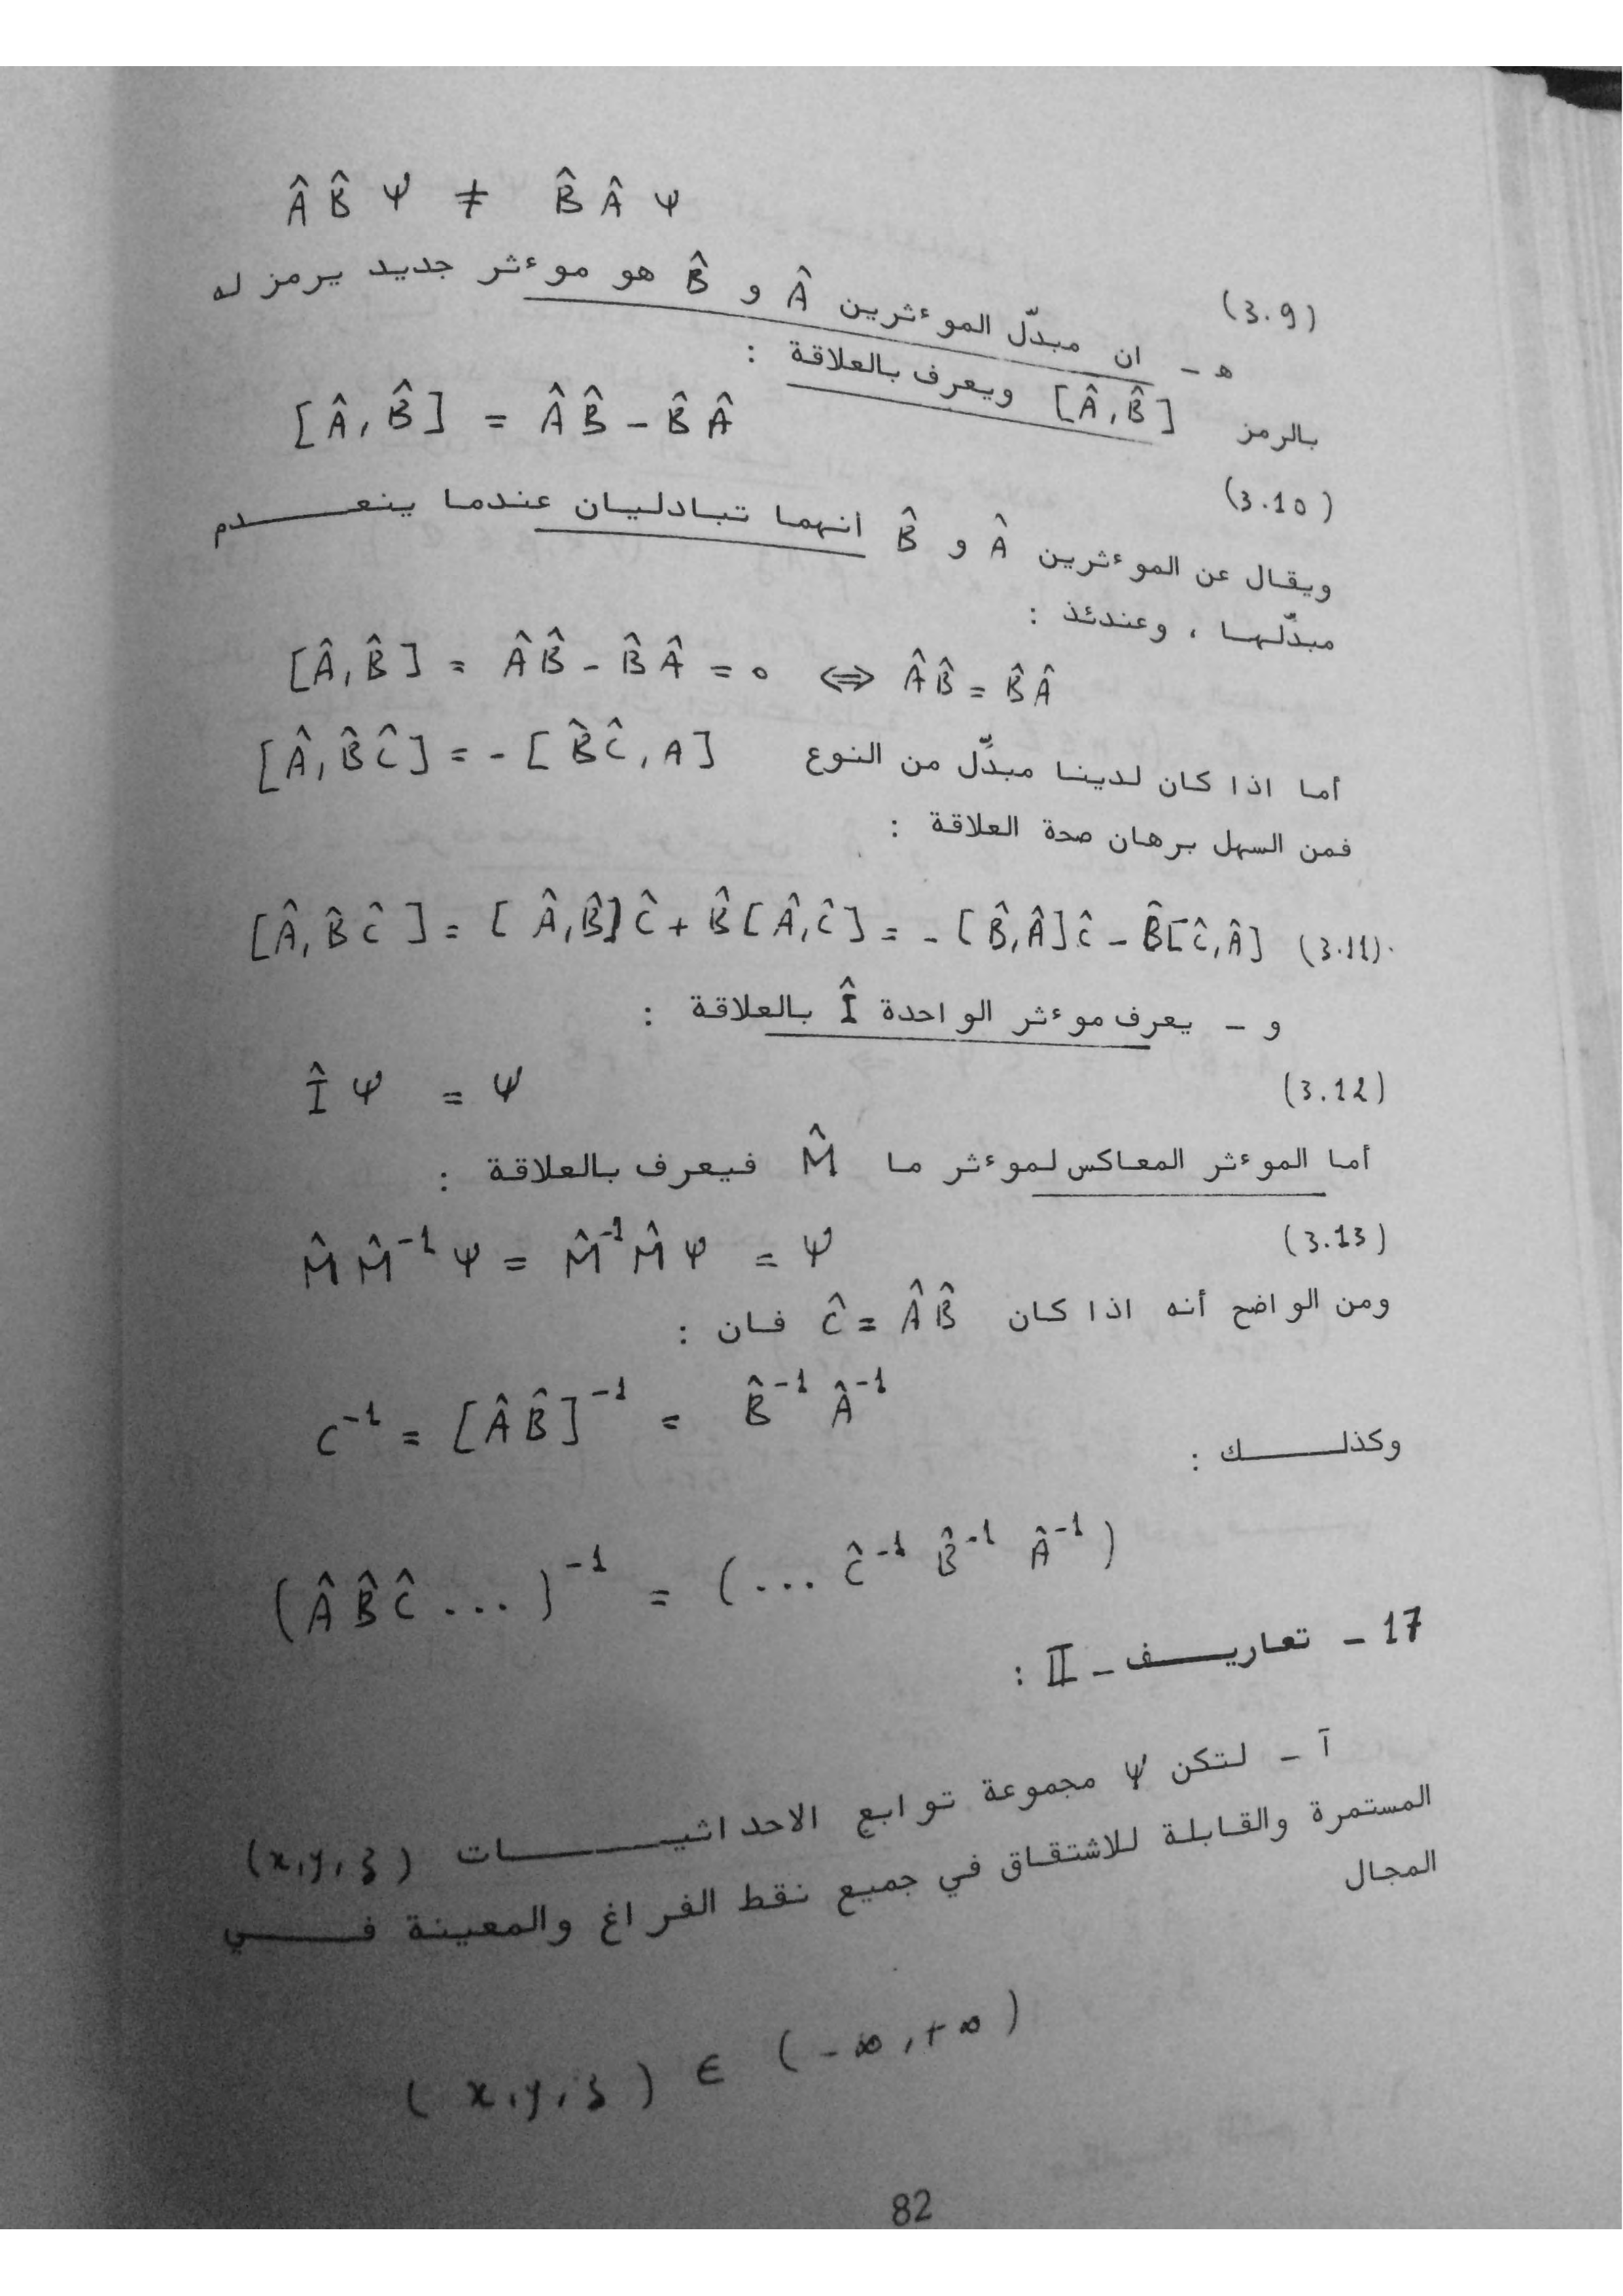 Â B̂ Ψ ≠ B̂ Â Ψ (3.9)
ه - ان مبدّل الموءثرين Â و B̂ هو موءثر جديد يرمز له
بالرمز [Â, B̂] ويعرف بالعلاقة :
[Â, B̂] = Â B̂ - B̂ Â (3.10)
ويقال عن الموءثرين Â و B̂ انهما تبادليان عندما ينعدم
مبدّلهما ، وعندئذ :
[Â, B̂] = Â B̂ - B̂ Â = 0 ⇔ Â B̂ = B̂ Â
أما اذا كان لدينا مبدّل من النوع [Â, B̂ Ĉ] = - [B̂ Ĉ, A]
فمن السهل برهان صحة العلاقة :
[Â, B̂ Ĉ] = [Â, B̂] Ĉ + B̂ [Â, Ĉ] = - [B̂, Â] Ĉ - B̂ [Ĉ, Â] (3.11)
و - يعرف موءثر الواحدة Î بالعلاقة :
Î Ψ = Ψ (3.12)
أما الموءثر المعاكس لموءثر ما M̂ فيعرف بالعلاقة :
M̂ M̂⁻¹ Ψ = M̂⁻¹ M̂ Ψ = Ψ (3.13)
ومن الواضح أنه اذا كان Ĉ = Â B̂ فان :
C⁻¹ = [Â B̂]⁻¹ = B̂⁻¹ Â⁻¹
وكذلك :
(Â B̂ Ĉ ...)⁻¹ = (... Ĉ⁻¹ B̂⁻¹ Â⁻¹)
17 - تعاريف - II :
آ - لتكن Ψ مجموعة توابع الاحداثيات (x, y, z)
المستمرة والقابلة للاشتقاق في جميع نقط الفراغ والمعينة في
المجال
(x, y, z) ∈ (-∞, +∞)
82